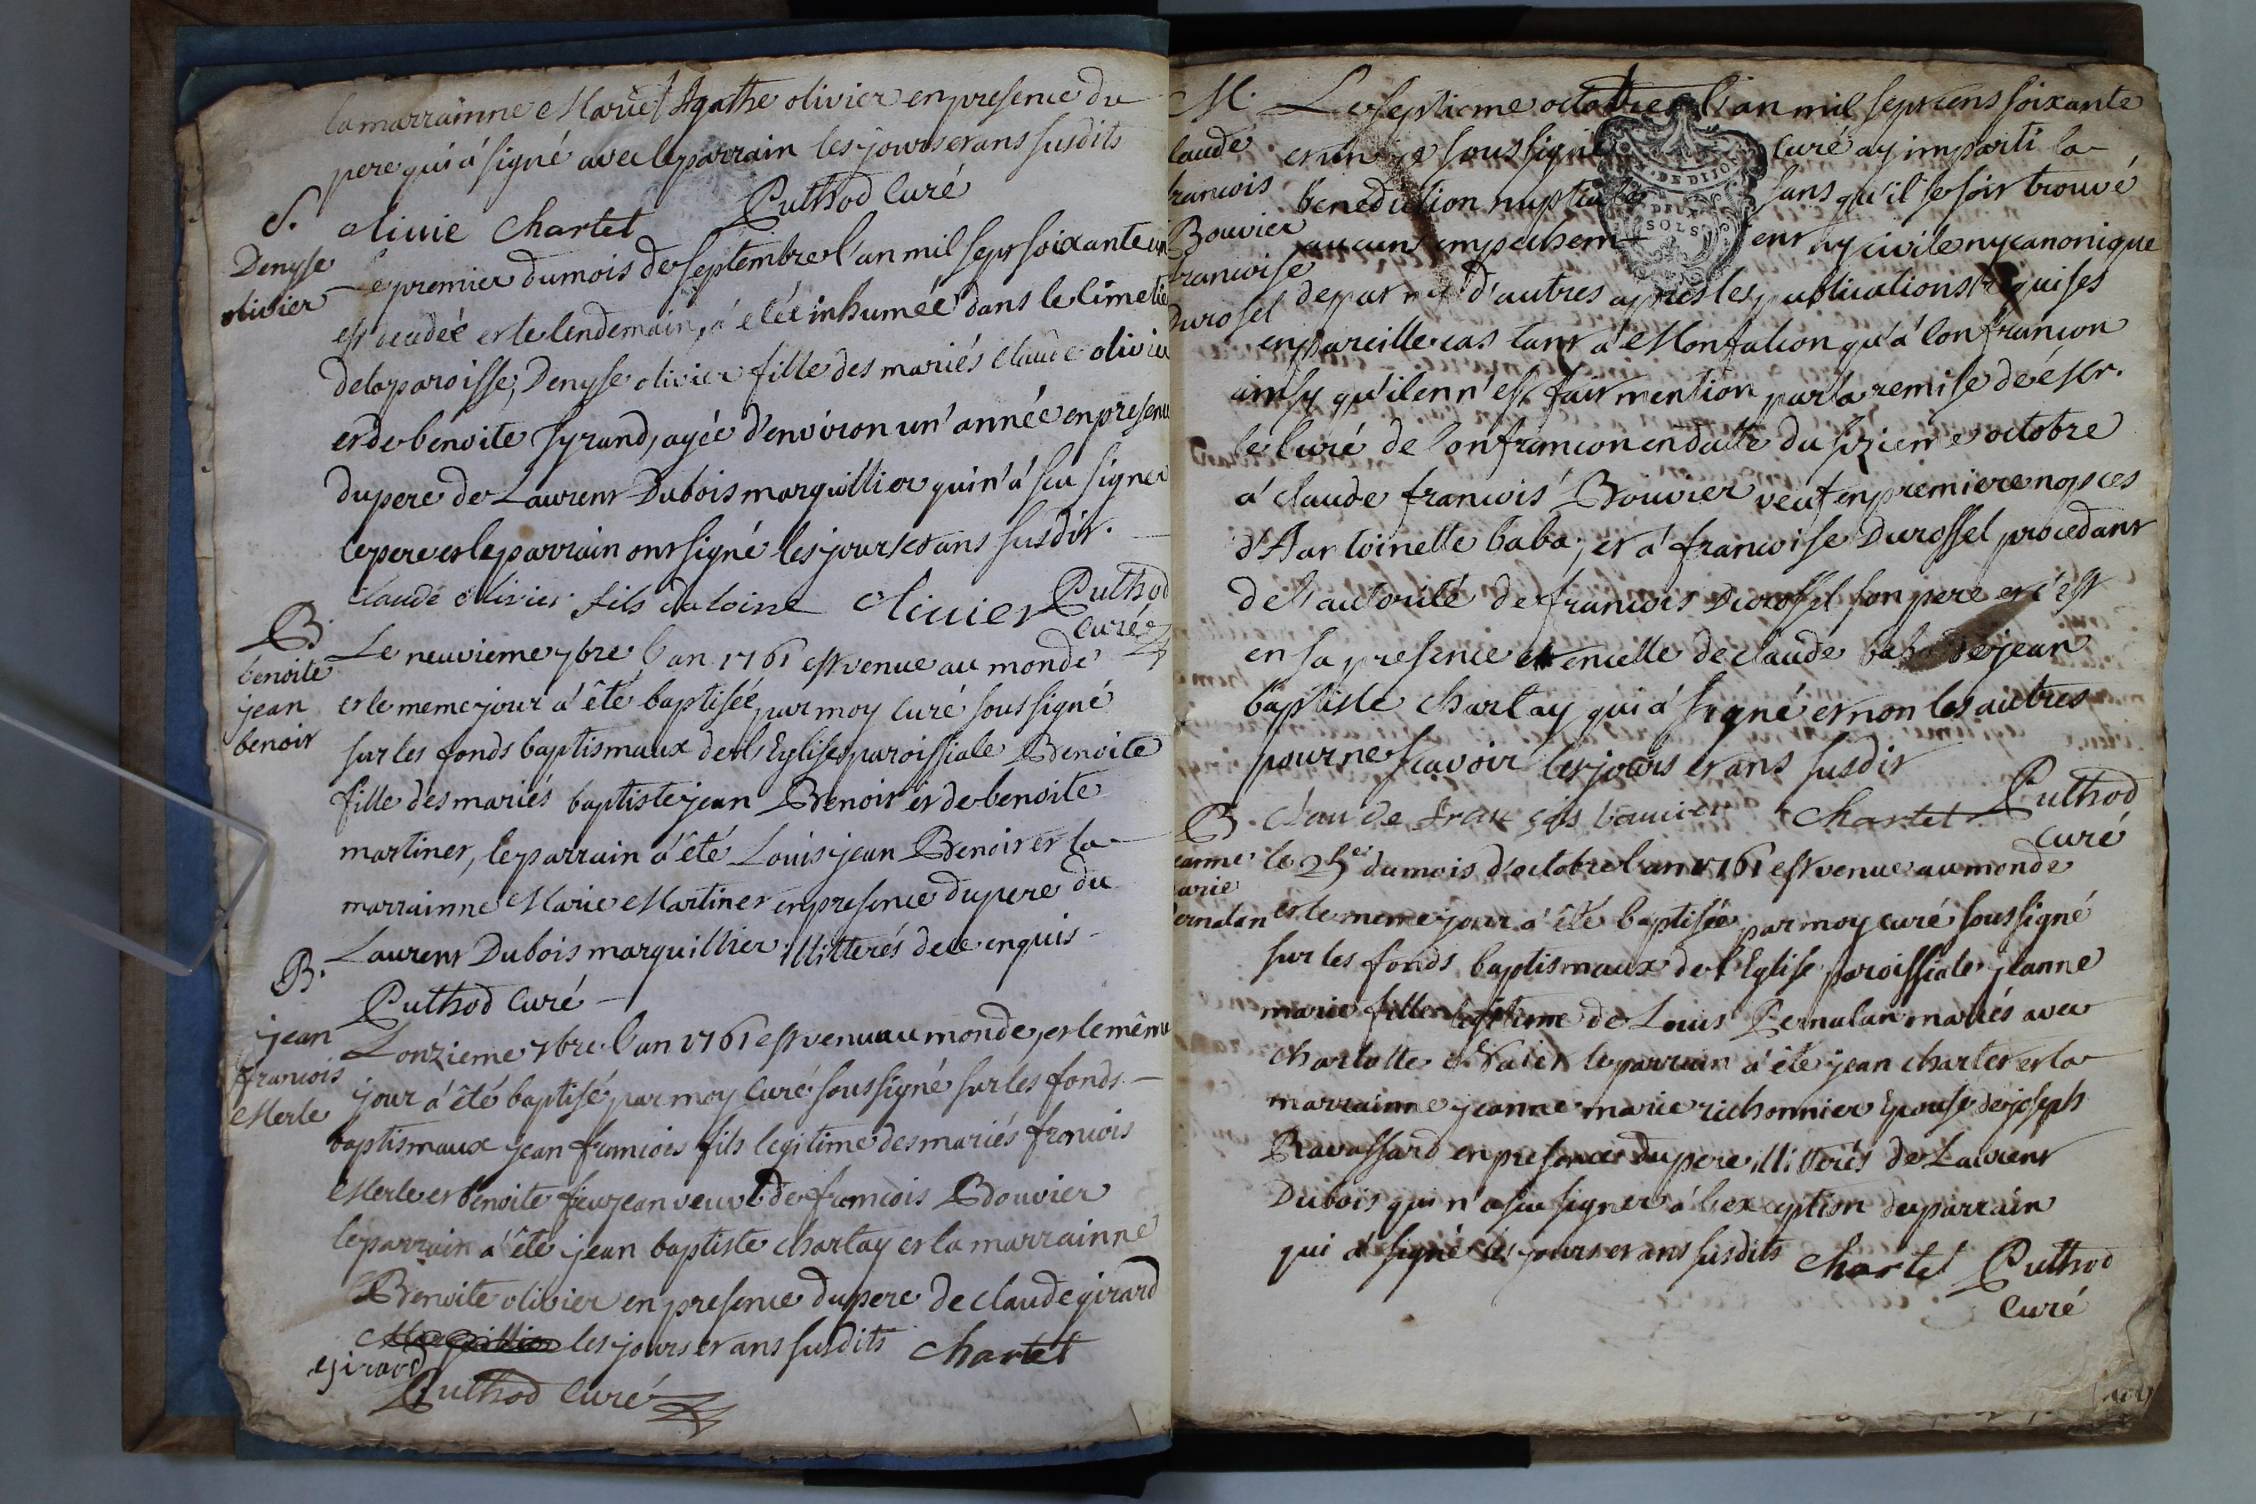 la marrainne Marie Agathe olivier en presence du
pere qui á signé avec le parrain les jours et ans susdits
olivie Chartet Puthod Curé
S.
Denyse
olivier
le premier du mois de septembre l'an mil sept soixante un
est decedée et le lendemain, á été inhumée dans le Cimetie
de la paroisse, Denyse olivier fille des mariés Claude olivier
et de benoite Syrand, agée d'environ un' année en presence
du pere de Laurent Dubois marguillier qui n'á sçu signer
le pere et le parrain ont signé les jours et ans susdit.
Claude olivier fils datoine olivier Puthod
Curé
B.
benoite
jean
benoit
Le neuvieme 7bre l'an 1761 est venue au monde
et le meme jour á été baptisée par moy Curé soussigné
sur les fonds baptismaux de l'Eglise paroissiale Benoite
fille des mariés baptiste jean Benoit et de benoite
martinet, le parrain á été Louis jean Benoit et la
marrainne Marie Martinet en presence du pere du
Laurent Dubois marguillier illitterés de ce enquis
Puthod Curé
B.
jean
francois
Merle
L'onzieme 7bre l'an 1761 est venu au monde, et le même
jour á été baptisé par moy Curé soussigné sur les fonds
baptismaux jean francois fils legitime des mariés francois
Merle et benoite jean veuve de francois Bouvier
le parrain á été jean baptiste chartay et la marrainne
Benoite olivier en presence du pere de claude girard
les jours et ans susdits Chartet
girard
Puthod Curé
M.
laude
rancois
Bouvier
rancoise
Durosel
Le septieme octobre l'an mil sept cens soixante
et un je soussigné Curé ay imparti la
benediction nuptiale sans qu'il se soit trouvé
aucuns empechement ny civile ny canonique
de part ny d'autres apres les publications requises
en pareille cas tant á Montfalcon qu'á Confrançon
ainsy qu'il en n'est fait mention par la remise de Mr.
le Curé de Confrancon en datte du sizieme octobre
á Claude francois Bouvier veuf en premiere nopces
d'Antoinette baba, et á francoise Durossel procedant
de l'autorité de francois Durossel son pere et c'est
en sa presence et en celle de claude baba de jean
baptiste Chartay qui á signé et non les autres
pour ne scavoir les jours et ans susdit
Claude francois bouvier Chartet Puthod
Curé
B.
eanne
arie
ernalan
le 25e du mois d'octobre l'an 1761 est venue au monde
et le meme jour á été baptisée par moy curé soussigné
sur les fonds baptismaux de l'Eglise paroissiale jeanne
marie fille legitime de Louis Pernalan mariés avec
Charlotte le parrain á été jean chartet et la
marrainne jeanne marie richonnier Epouse de joseph
Ravassard en presence du pere illitterés de Laurent
Dubois qui n'a sçu signer á l'exception du parrain
qui á signé les jours et ans susdits Chartet Puthod
Curé
DE DIJO
DEUX
SOLS